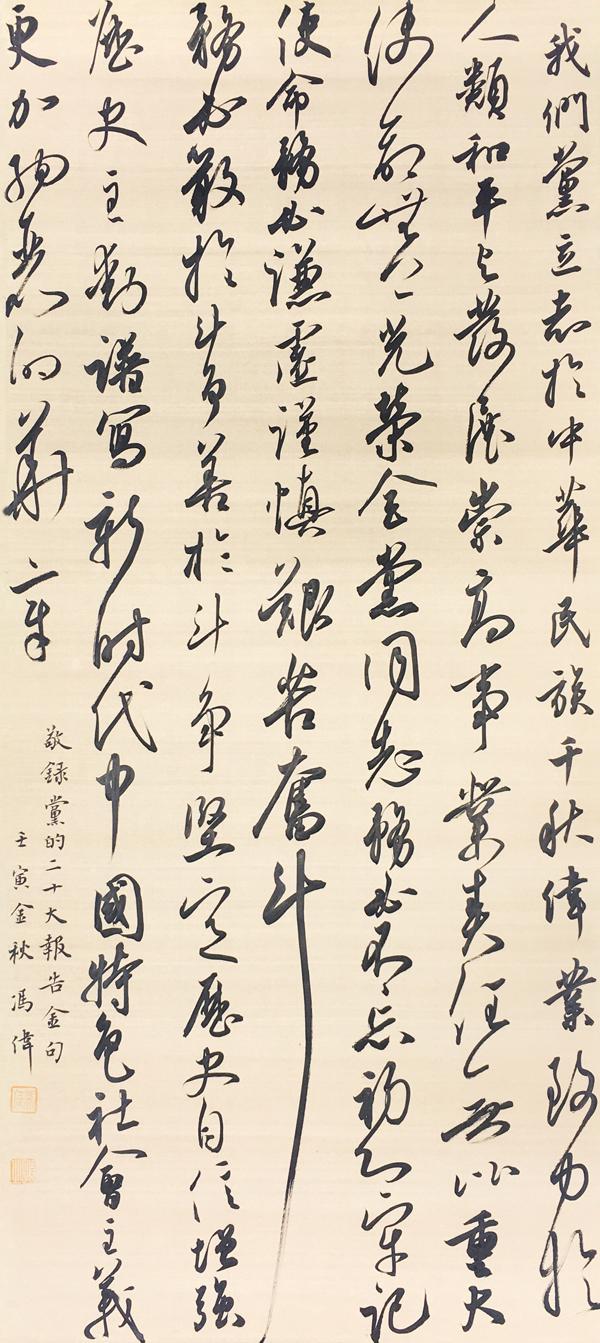 我們黨立志於中華民族千秋偉業致力於
人類和平与發展崇高事業責任無比重大
使命無上光榮全黨同志務必不忘初心牢記
使命務必謙虛謹慎艱苦奮斗
務必敢於斗争善於斗争堅定歷史自信增強
歷史主動譜寫新時代中國特色社會主義
更加絢麗的華章
敬錄黨的二十大報告金句
壬寅金秋馮偉